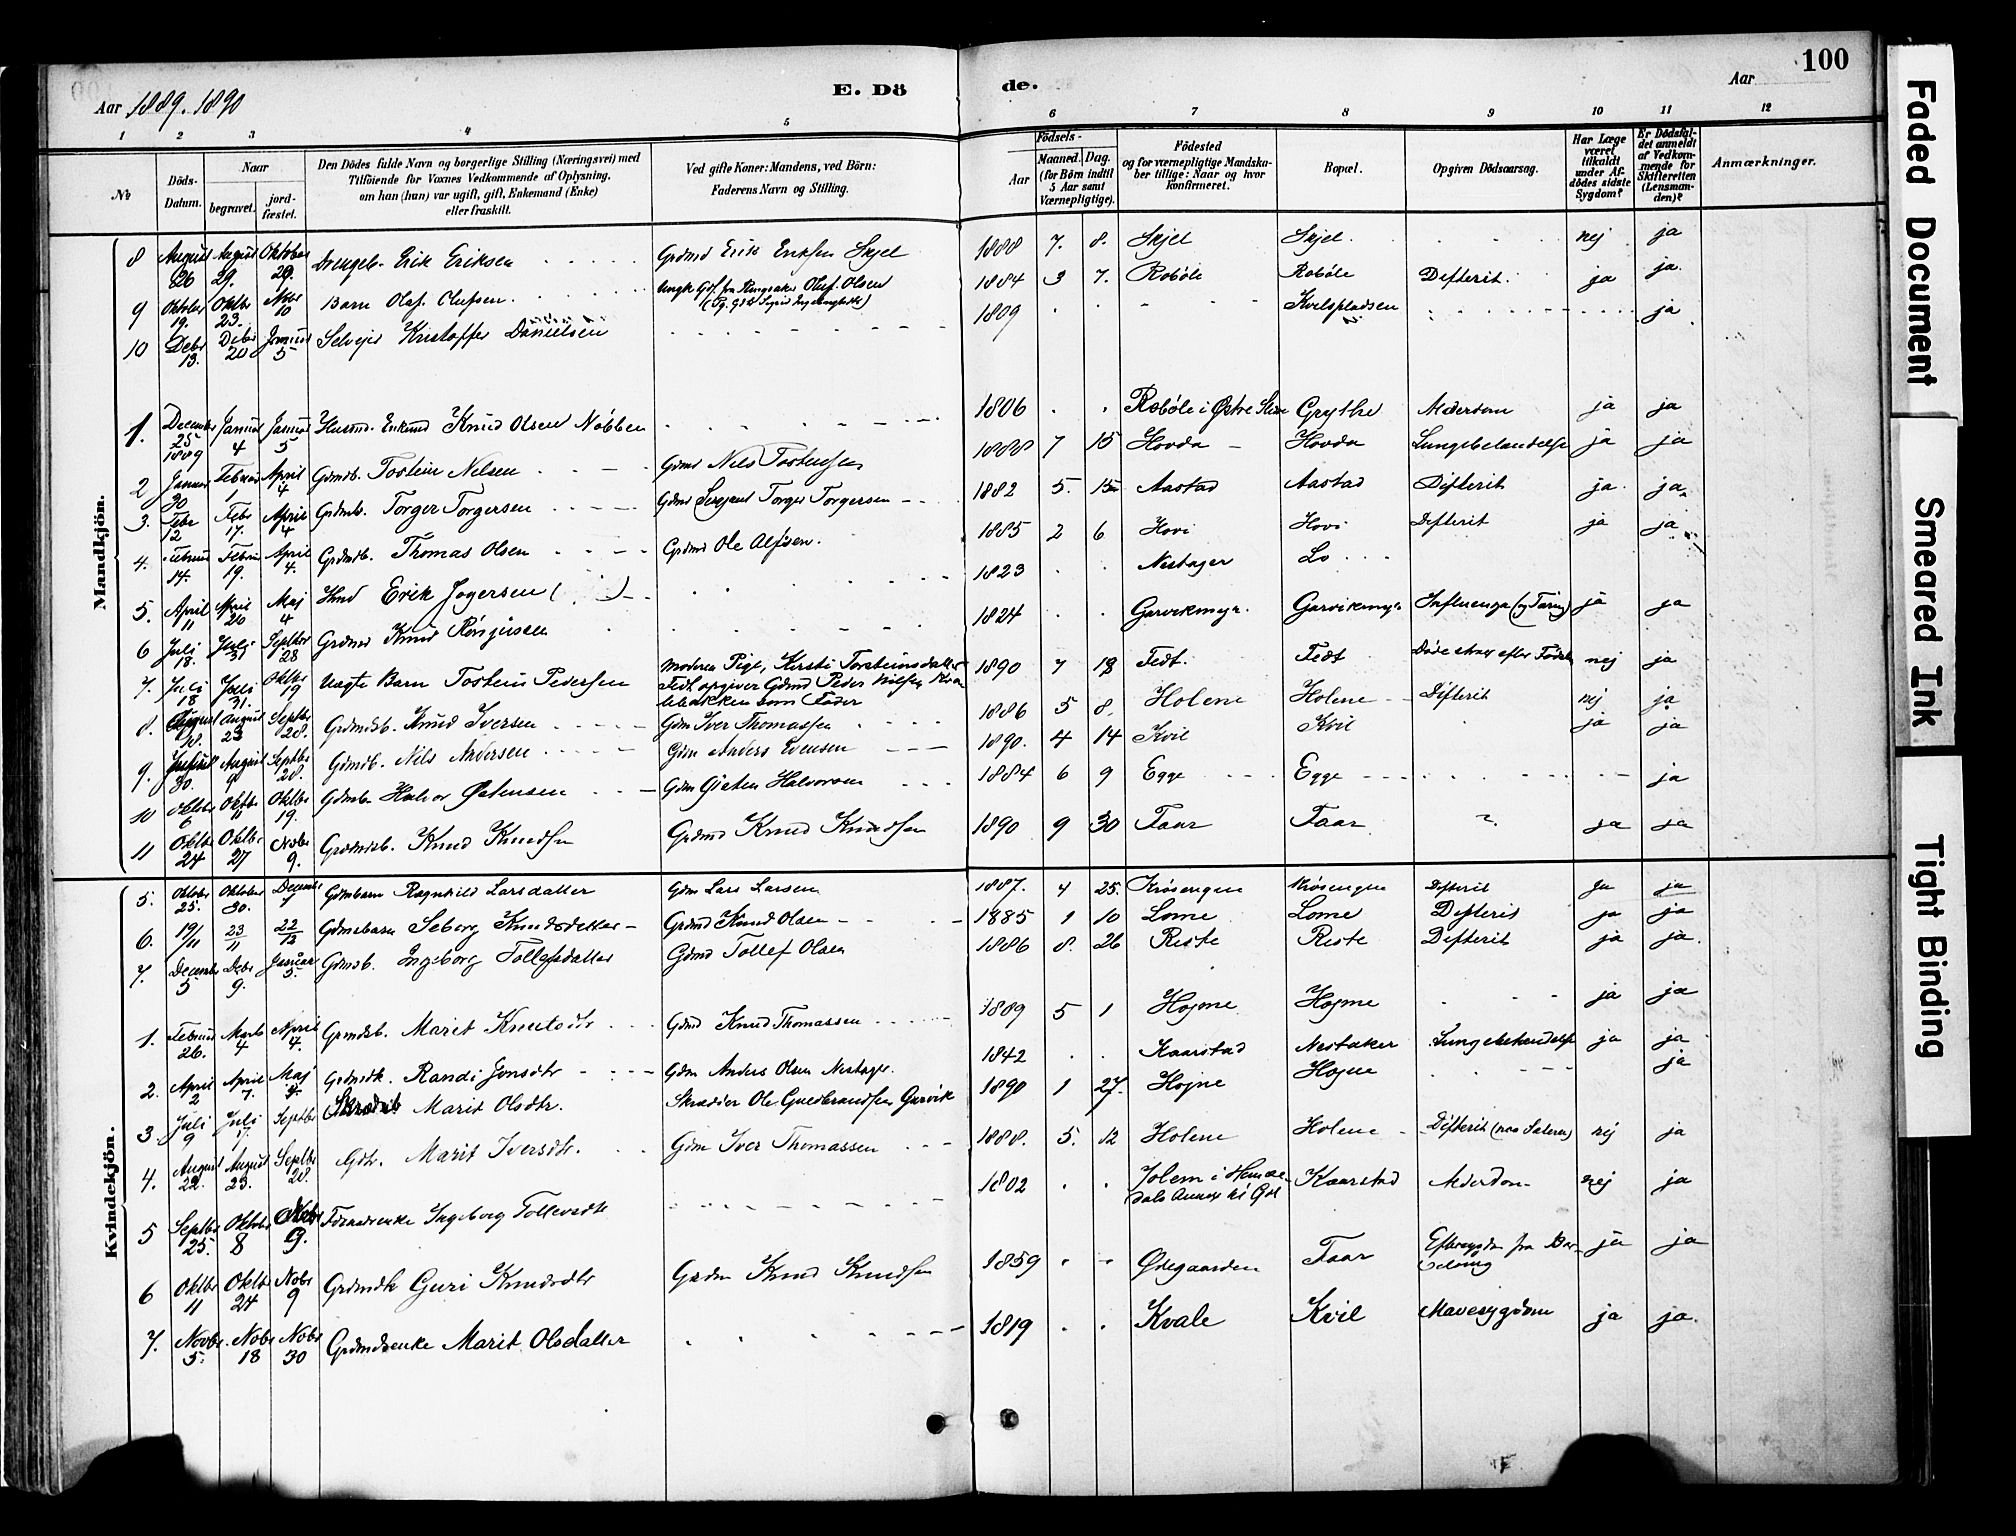 100
Aar 1889. 1890
E. Dö
de.
Aar
1 2 3 4 5 6 7 8 9 10 11 12
№
Döds-Datum.
Naar
begravet.
jord-fæstet.
Den Dödes fulde Navn og borgerlige Stilling (Næringsvei) med
Tilföiende for Voxnes Vedkommende af Oplysning,
om han (hun) var ugift, gift, Enkemand (Enke)
eller fraskilt.
Ved gifte Koner: Mandens, ved Börn:
Faderens Navn og Stilling.
Födsels-
Aar
Maaned. Dag.
(for Börn indtil
5 Aar samt
Værnepligtige).
Födested
og for værnepligtige Mandska-
ber tillige: Naar og hvor
konfirmeret.
Bopæl.
Opgiven Dödsaarsag.
Har Læge
været
tilkaldt
under Af-
dödes sidste
Sygdom?
Er Dödsfal-
det anmeldt
af Vedkom-
mende for
Skifteretten
(Lensman-
den)?
Anmærkninger.
Mandkjön.
8 August 26 August 29. Oktober 29. Erik Eriksen Grdmd Erik Eriksen Skjel 1888 7. 8. Skjel Skjel. nej ja
9 Oktober 19. Oktbr 23. Nobr 10 Barn Olaf Olufsen. Ringsaker Oluf Olsen 1884 3 7. Robøle Robøle Difterit. ja ja.
10 Debr 13. Debr 20 Januar 5 Selvejer Kristoffer Danielsen 1809 Kvilspladsen ja
1. December 25 1889 Januar 4 Januar 5 Husmd. Enkemd Knud Olsen Nøbben 1806 Robøle i Østre Slire Grythe Alderdom ja ja
2 Januar 30 Februar 1 April 4 Gdmdb. Tostein Nelsen Gdmd Nels Tostensen 1888 7 15 Hovda Hovda Lungebetændelse ja ja
3. Febr 12 Febr 17. April 4 Grdmdb. Torger Torgersen Gdmd Sersjant Torger Torgersen 1882 5. 15 Aastad Aastad Difterit ja. ja.
4. Februar 14. Februar 19. April 4. Grdmdb. Thomas Olsen Grdmd Ole Alfsen. 1885 2 6 Hovi Hovi Difterit ja ja
5. April 11 April 20 Maj 4 Hmd Erik Jogersen 1823 Nestager Lo
6 Juli 18. Juli 31 Septbr 28 Grdmd Knud 1824 Garvikmoyr. Garvikmoyr Influenza (og Tæring) ja ja
7. Juli 18 Juli 31. Oktbr 19 Uægte Barn Tostein Pedersen Moderen Pige, Kirsti Torsteinsdatter
Fedt opgiver Gdmd Peder Nilsen
bakken som Fader 1890 7 18 Fedt. Fedt Døde strax efter Fødsel nej ja
8. August 18. August 23 Septbr 28. Grdmdsb. Knud Iversen Gdm Iver Thomassen 1886 5 8. Holene Holene Difterit nej ja
9. 30. August 9 Septbr 28. Gdmdb. Nels Andersen Gdm Anders Evensen 1890. 4 14 Kvil Kvil ja ja
10 Oktober 6 Oktbr 11 Oktbr 19. Gdmdb Halvor Østensen Gdm Østen Halvorsen 1884 6 9 Egge Egge ja
11 Oktbr 24 Oktbr 27 Nobr 9. Grdmdsb. Knud Knudsen Grdmd Knud Knudsen 1890 9 30 Faar Faar ja ja
Kvindekjön.
5. Oktober 25. Oktober 30. December 1 Gdmbarn Ragnhild Larsdatter Gdm Lars Larsen 1887. 4 25. Krøsengen Krøsengen Difterit ja ja
6. 19/11 23/11 22/12 Gdmsbarn Seborg Knudsdatter Grdmd Knud Olsen 1885 1 10 Lome Lome Difterit ja ja
7. December 5 Debr 9. Januar 5. Gdmdsb. Ingeborg Tollefsdatter Gdmd Tollef Olsen 1886 8. 26 Reste Reste Difterit ja ja.
1. Februar 26. Marts 4 April 4. Grmdsb. Marit Knutsdtr Gdmd Knud Thomassen 1889 5 1 Hojme Hojme ja ja
2. April 2 April 7. Maj 4. Grdmdk. Randi Jonsdtr Gdm Anders Olsen Nestager. 1842 Kaarstad Nestaker Lungebetændelse ja ja
3. Juli 9 Juli 17. Septbr Marit Olsdtr. Skrædder Ole Guldbrandsen Garvik 1890 1 27. Hojne Hojne ja
4. August 22. August 23. Septbr 28. Gdtr. Marit Iversdtr. Gdm Iver Thomassen 1888. 5. 12 Holene Holene Difterit (paa Sæteren) nej ja
5 Septbr 25. Oktober 8 Nobr 9. Ingeborg Tollevsdtr 1802 i Hemse-
dals Annex til Gol Kaarstad Alderdom nej ja
6 Oktbr 11 Oktbr 24 Nobr 9 Grdmdk Guri Knudsdtr Grdm Knud Knudsen 1859 Ødegaarden Faar Eftersygdom fra Bar-
selseng ja ja
7. Novbr. 5. Nobr 18 Nobr 30 Grdmdsenke Marit Olsdatter 1819 Kvale Kvil Mavesygdom ja ja.
Faded Document
Smeared Ink
Tight Binding